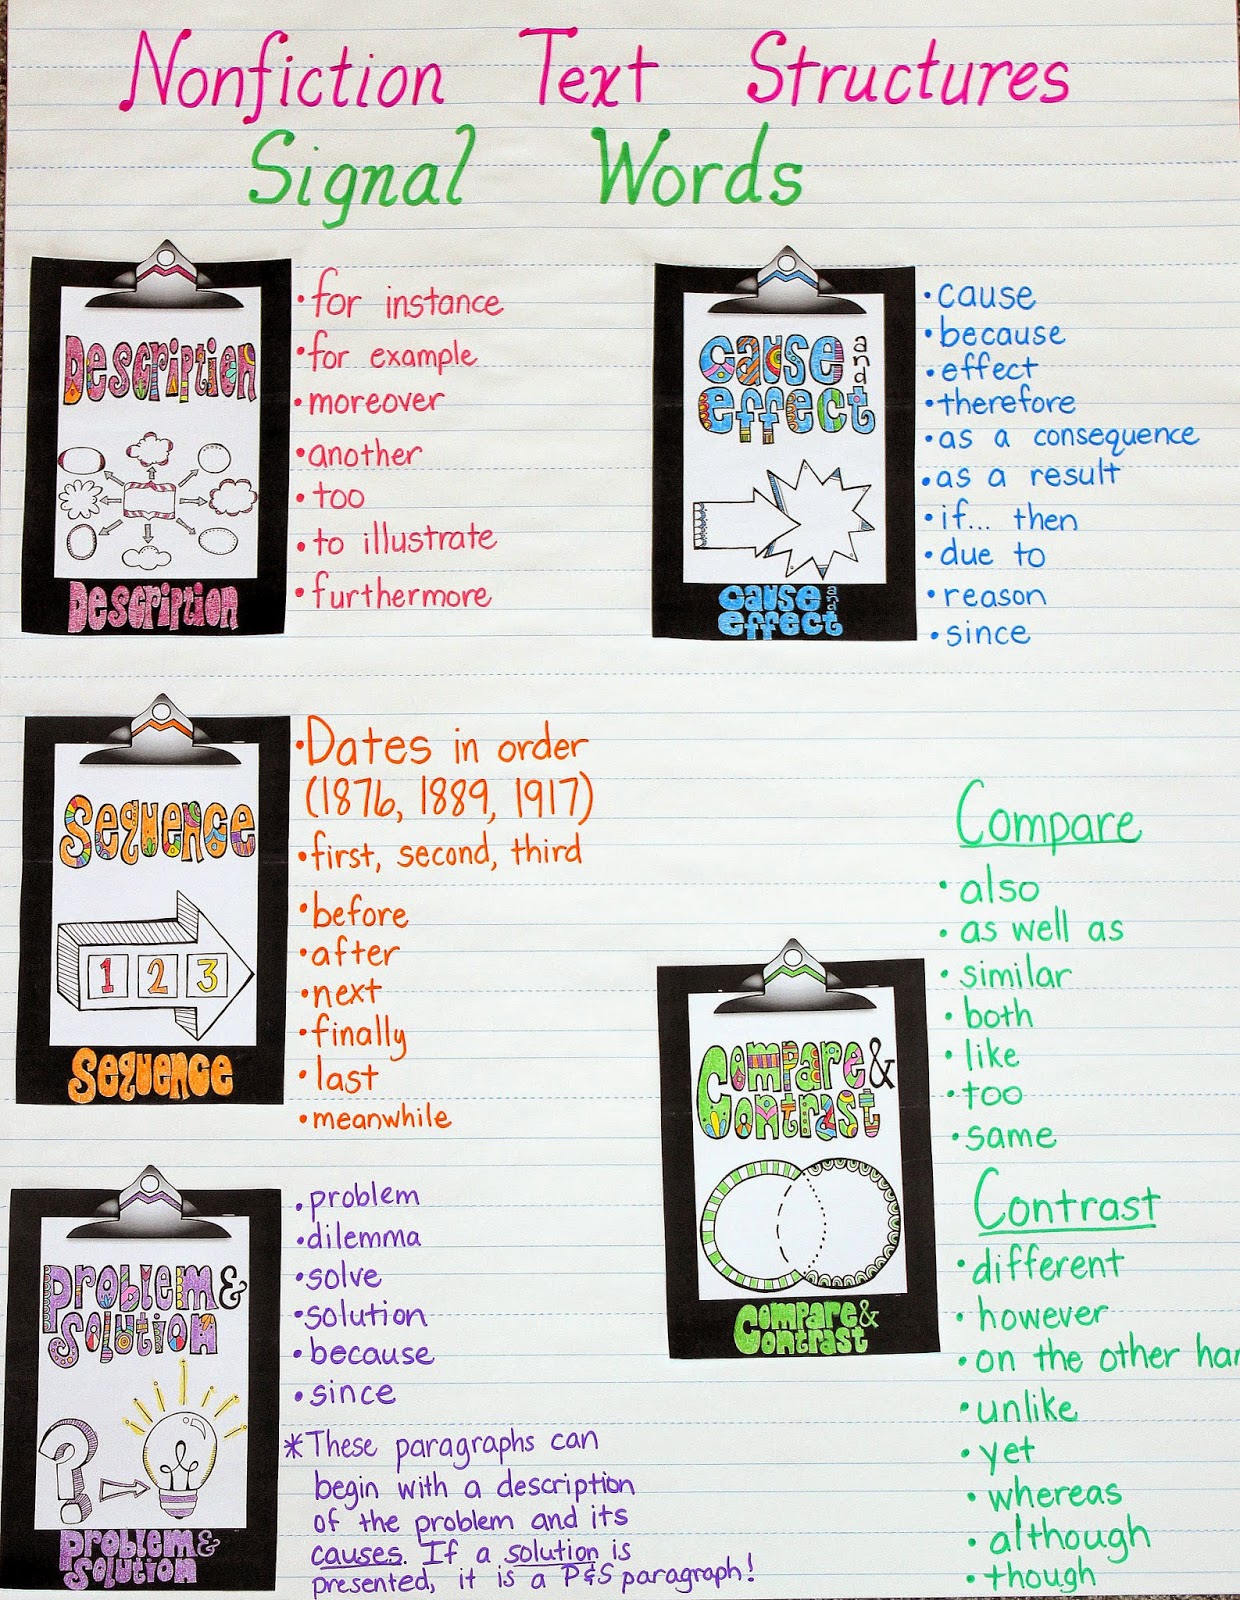 Nonfiction Text Structures
Signal Words
Description
Description
• for instance
• for example
• moreover
• another
• too
• to illustrate
• furthermore
cause and
effect
cause and
effect
• cause
• because
• effect
• therefore
• as a consequence
• as a result
• if... then
• due to
• reason
• since
Sequence
1 2 3
Sequence
• Dates in order
(1876, 1889, 1917)
• first, second, third
• before
• after
• next
• finally
• last
• meanwhile
Compare &
Contrast
Compare &
Contrast
Compare
• also
• as well as
• similar
• both
• like
• too
• same
Contrast
• different
• however
• on the other
• unlike
• yet
• whereas
• although
• though
Problem &
Solution
?
Problem &
Solution
• problem
• dilemma
• solve
• solution
• because
• since
* These paragraphs can
begin with a description
of the problem and its
causes. If a solution is
presented, it is a P&S paragraph!